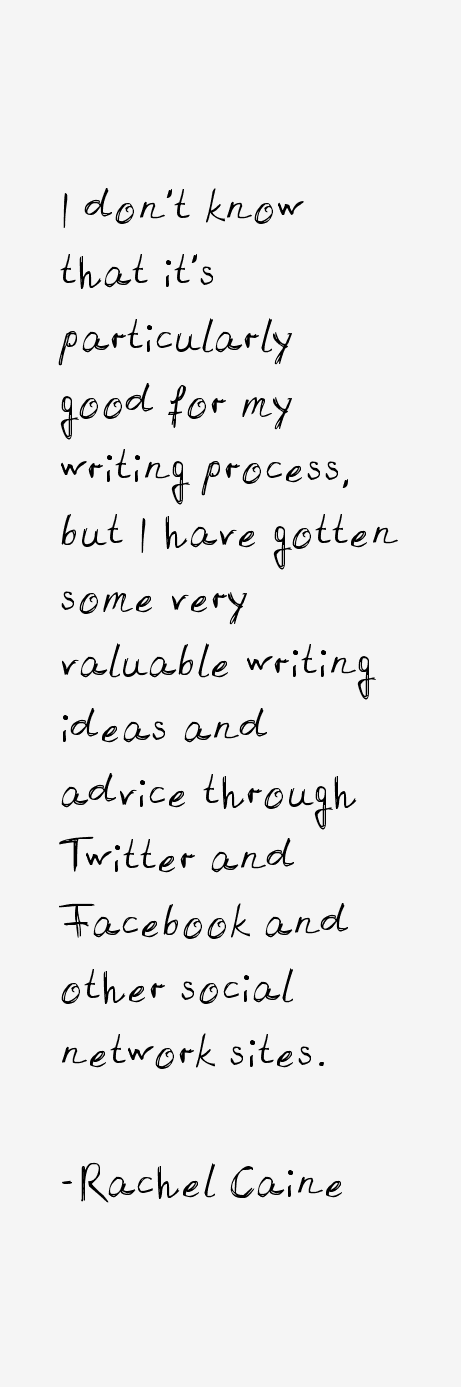 I don't know
that it's
particularly
good for my
writing process,
but I have gotten
some very
valuable writing
ideas and
advice through
Twitter and
Facebook and
other social
network sites.
-Rachel Caine